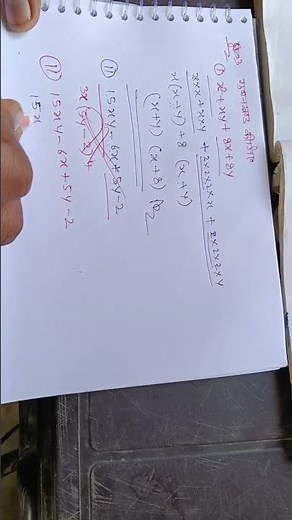 गुणनखंड कीजिये
(i) x² + xy + 8x + 8y
x×x + x×y + 2×2×2×x + 2×2×2×y
x(x+y) + 8 (x+y)
(x+y) (x+8)
(ii) 15xy - 6x + 5y - 2
(ii) 15xy - 6x + 5y - 2
15x